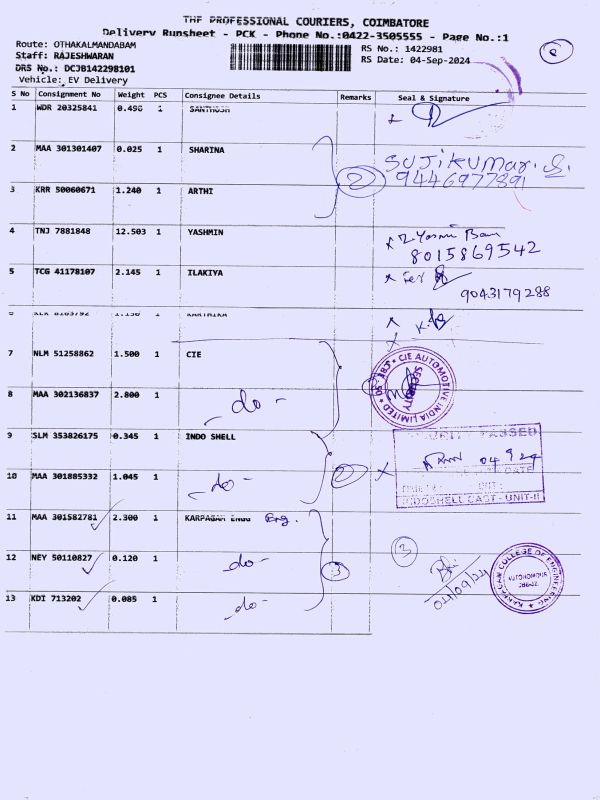 THE PROFESSIONAL COURIERS, COIMBATORE
Delivery Runsheet - PCK - Phone No.:0422-3505555 - Page No.:1
Route: OTHAKALMANDABAM
Staff: RAJESHWARAN
DRS No.: DCJB142298101
Vehicle: EV Delivery
RS No.: 1422981
RS Date: 04-Sep-2024
S No Consignment No Weight PCS Consignee Details Remarks Seal & Signature
1 WDR 20325841 0.490 1 SANTHOSH
2 MAA 301301407 0.025 1 SHARINA
Sujikumar. S.
9446977891
3 KRR 50060671 1.240 1 ARTHI
4 TNJ 7881848 12.503 1 YASHMIN
8015869542
5 TCG 41178107 2.145 1 ILAKIYA
9043179288
KARTHIKA
7 NLM 51258862 1.500 1 CIE
CIE AUTOMOTIVE INDIA LIMITED
SECURITY
8 MAA 302136837 2.800 1 - do -
9 SLM 353826175 0.345 1 INDO SHELL
SECURITY PASSED
INDOSHELL CAST - UNIT-II
10 MAA 301885332 1.045 1 - do -
2
11 MAA 301582781 2.300 1 KARPAGAM ENGG Eng.
12 NEY 50110827 0.120 1 - do -
3
KARPAGAM COLLEGE OF ENGINEERING
AUTONOMOUS
13 KDI 713202 0.085 1 - do -
3